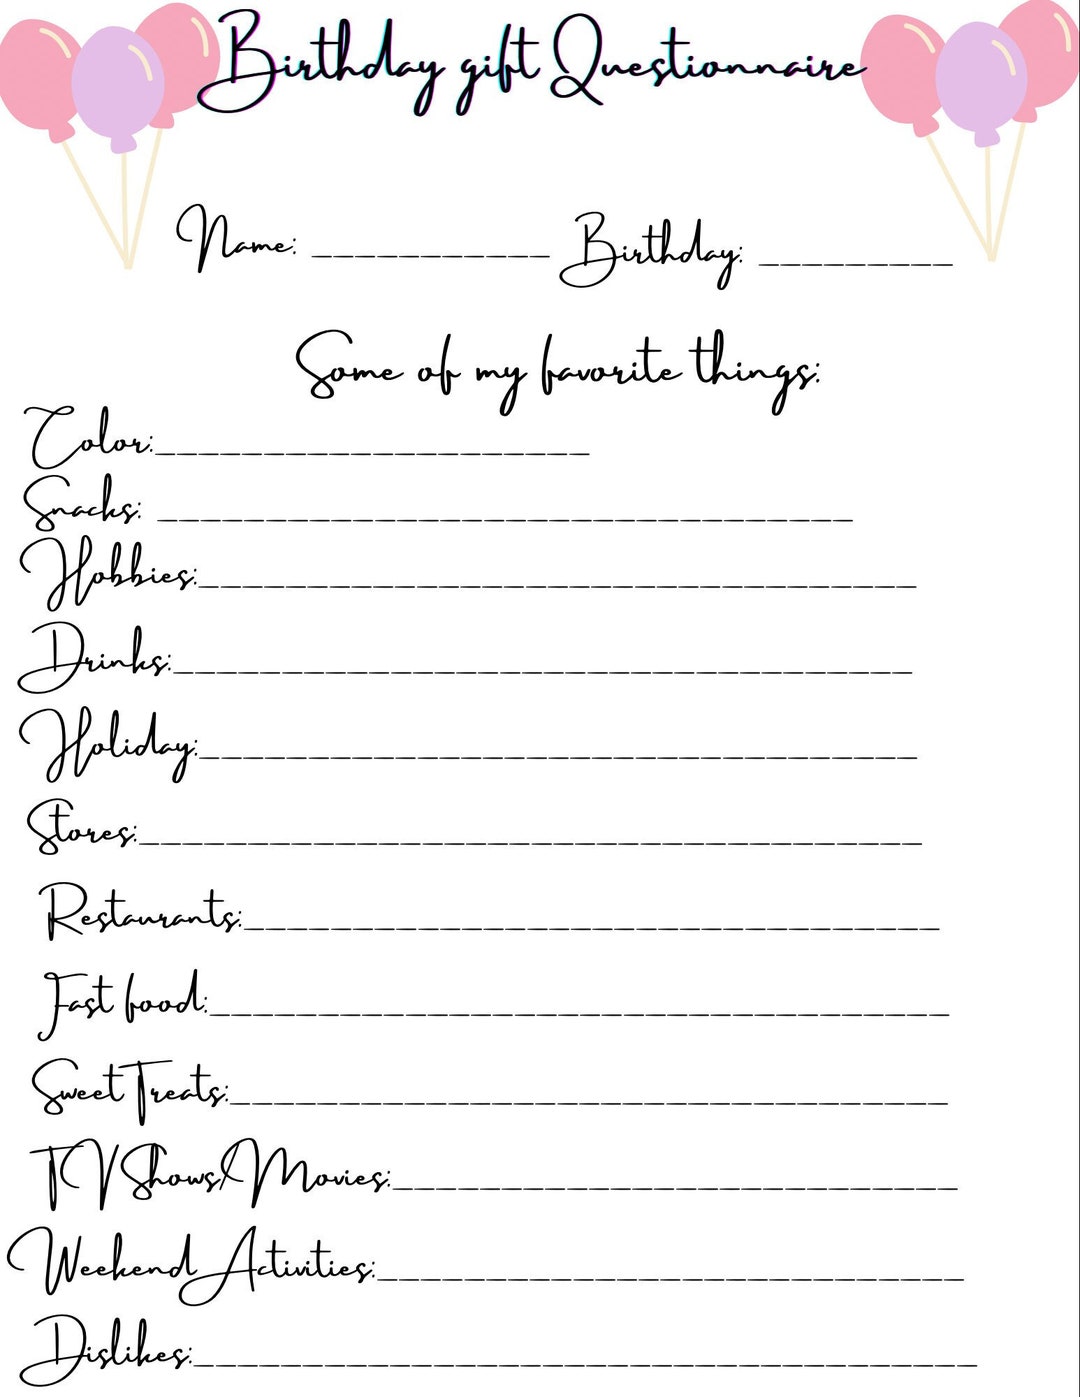 Birthday gift Questionnaire
Name: ___________ Birthday: _________
Some of my favorite things:
Color:____________________
Snacks: ________________________________
Hobbies:_________________________________
Drinks:__________________________________
Holiday:_________________________________
Stores:____________________________________
Restaurants:________________________________
Fast food:__________________________________
Sweet Treats:_________________________________
TV Shows/Movies:__________________________
Weekend Activities:___________________________
Dislikes:____________________________________